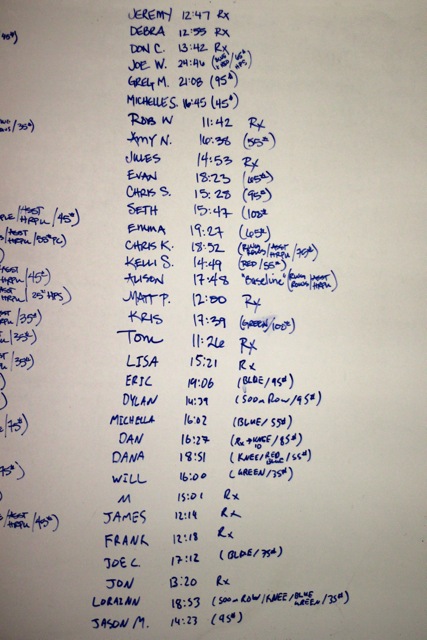 JEREMY 12:47 Rx
DEBRA 12:55 Rx
DON C. 13:42 Rx
JOE W. 24:46
GREG M. 21:08 (95#)
MICHELLE S. 16:45 (45#)
ROB W 11:42 Rx
AMY N. 16:38 (55#)
JULES 14:53 Rx
EVAN 18:23 (65#)
CHRIS S. 15:28 (95#)
SETH 15:47 (100#)
EMMA 19:27 (65#)
CHRIS K. 18:52 (RING ROWS/ASST HRPU/75#)
KELLI S. 14:49 (RED/55#)
ALISON 17:48 "Baseline" (RING ROWS/ASST HRPU)
MATT P. 12:50 Rx
KRIS 17:39 (GREEN/100#)
TOM 11:26 Rx
LISA 15:21 Rx
ERIC 19:06 (BLUE/95#)
DYLAN 14:39 (500m ROW/95#)
MICHELLA 16:02 (BLUE/55#)
DAN 16:27 (Rx→KNEE 10/85#)
DANA 18:51 (KNEE/RED/55#)
WILL 16:00 (GREEN/75#)
M 15:01 Rx
JAMES 12:19 Rx
FRANK 12:18 Rx
JOE C. 17:12 (BLUE/75#)
JON 13:20 Rx
LORAINN 18:53 (500m ROW/KNEE/BLUE GREEN/35#)
JASON M. 14:23 (95#)